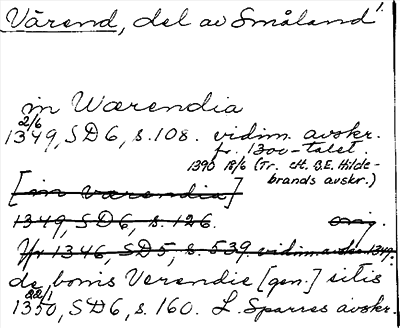 Värend, del av Småland 1.
in Wærendia
2/6
1349, SD 6, s. 108. vidim. avskr.
fr. 1300-talet.
1390 18/6 (Tr. eft. B.E. Hilde-
brands avskr.)
[in værendia]
1349, SD 6, s. 126. orig.
Jfr 1346, SD 5, s. 539. vidim. avskr. 1349.
de bonis Verendie [gen.] sitis
22/1
1350, SD 6, s. 160. L. Sparres avskr.